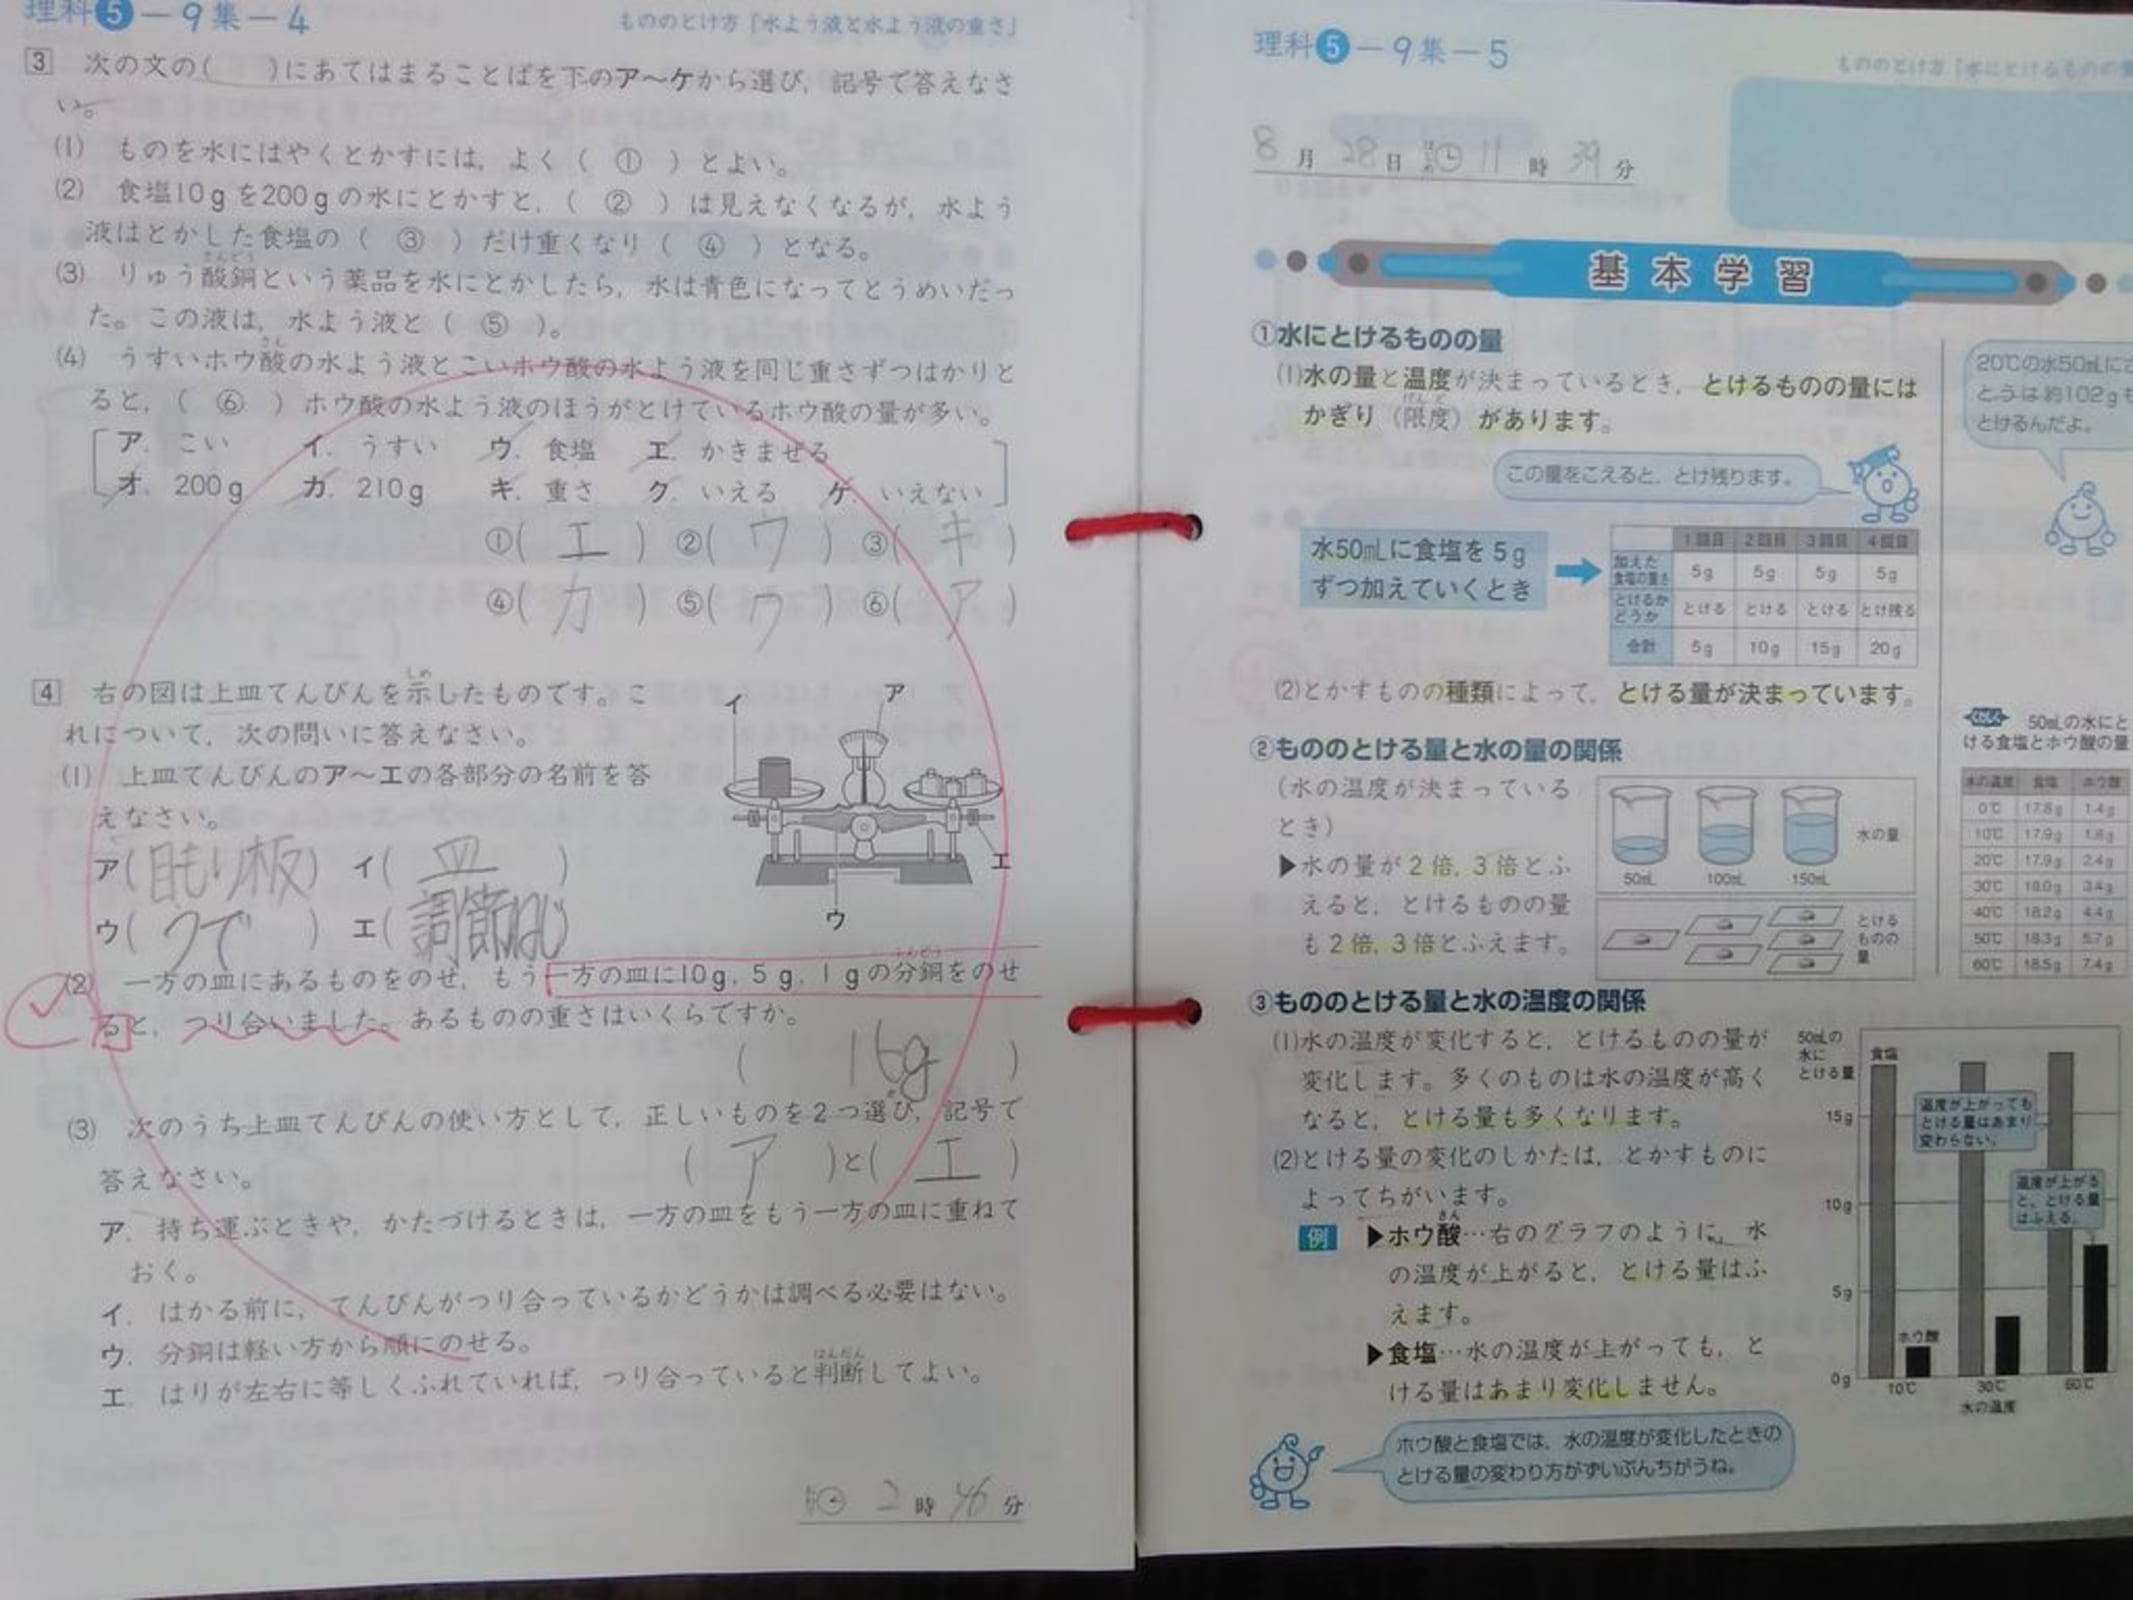 理科5－9集－4
もののとけ方「水よう液と水よう液の重さ」
3 次の文の(　　)にあてはまることばを下のア～ケから選び，記号で答えなさ
い。
(1) ものを水にはやくとかすには，よく（ ① ）とよい。
(2) 食塩10gを200gの水にとかすと，（ ② ）は見えなくなるが，水よう
液はとかした食塩の（ ③ ）だけ重くなり（ ④ ）となる。
さんどう
(3) りゅう酸銅という薬品を水にとかしたら，水は青色になってとうめいだっ
た。この液は，水よう液と（ ⑤ ）。
さん
(4) うすいホウ酸の水よう液とこいホウ酸の水よう液を同じ重さずつはかりと
ると，（ ⑥ ）ホウ酸の水よう液のほうがとけているホウ酸の量が多い。
ア．こい　イ．うすい　ウ．食塩　エ．かきまぜる
オ．200g　カ．210g　キ．重さ　ク．いえる　ケ．いえない
①( エ ) ②( ウ ) ③( キ )
④( カ ) ⑤( ウ ) ⑥( ア )
しめ
4 右の図は上皿てんびんを示したものです。こ
れについて，次の問いに答えなさい。
(1) 上皿てんびんのア～エの各部分の名前を答
えなさい。
イ ア
エ
ウ
ア( 目もり板 ) イ( 皿 )
ウ( うで ) エ( 調節ねじ )
ふんどう
(2) 一方の皿にあるものをのせ，もう一方の皿に10g，5g，1gの分銅をのせ
ると，つり合いました。あるものの重さはいくらですか。
( 16g )
(3) 次のうち上皿てんびんの使い方として，正しいものを2つ選び，記号で
答えなさい。
( ア )と( エ )
ア．持ち運ぶときや，かたづけるときは，一方の皿をもう一方の皿に重ねて
おく。
イ．はかる前に，てんびんがつり合っているかどうかは調べる必要はない。
ウ．分銅は軽い方から順にのせる。
はんだん
エ．はりが左右に等しくふれていれば，つり合っていると判断してよい。
2時46分
理科5－9集－5
もののとけ方「水にとけるものの
8月28日 11時39分
基本学習
①水にとけるものの量
(1)水の量と温度が決まっているとき，とけるものの量には
げんど
かぎり（限度）があります。
この量をこえると，とけ残ります。
水50mLに食塩を5g
ずつ加えていくとき
1回目 2回目 3回目 4回目
加えた食塩の重さ 5g 5g 5g 5g
とけるかどうか とける とける とける とけ残る
合計 5g 10g 15g 20g
(2)とかすものの種類によって，とける量が決まっています。
②もののとける量と水の量の関係
（水の温度が決まっている
とき）
▶水の量が2倍，3倍とふ
えると，とけるものの量
も2倍，3倍とふえます。
水の量
50mL 100mL 150mL
とける
ものの
量
③もののとける量と水の温度の関係
(1)水の温度が変化すると，とけるものの量が
変化します。多くのものは水の温度が高く
なると，とける量も多くなります。
(2)とける量の変化のしかたは，とかすものに
よってちがいます。
さん
例 ▶ホウ酸…右のグラフのように，水
の温度が上がると，とける量はふ
えます。
▶食塩…水の温度が上がっても，と
ける量はあまり変化しません。
ホウ酸と食塩では，水の温度が変化したときの
とける量の変わり方がずいぶんちがうね。
20℃の水50mLにさ
とうは約102gも
とけるんだよ。
くわしく 50mLの水にと
ける食塩とホウ酸の量
水の温度 食塩 ホウ酸
0℃ 17.8g 1.4g
10℃ 17.9g 1.8g
20℃ 17.9g 2.4g
30℃ 18.0g 3.4g
40℃ 18.2g 4.4g
50℃ 18.3g 5.7g
60℃ 18.5g 7.4g
50mLの
水に
とける量
食塩
温度が上がっても
とける量はあまり
変わらない。
温度が上がる
と，とける量
はふえる。
15g
10g
5g
0g
ホウ酸
10℃ 30℃ 60℃
水の温度